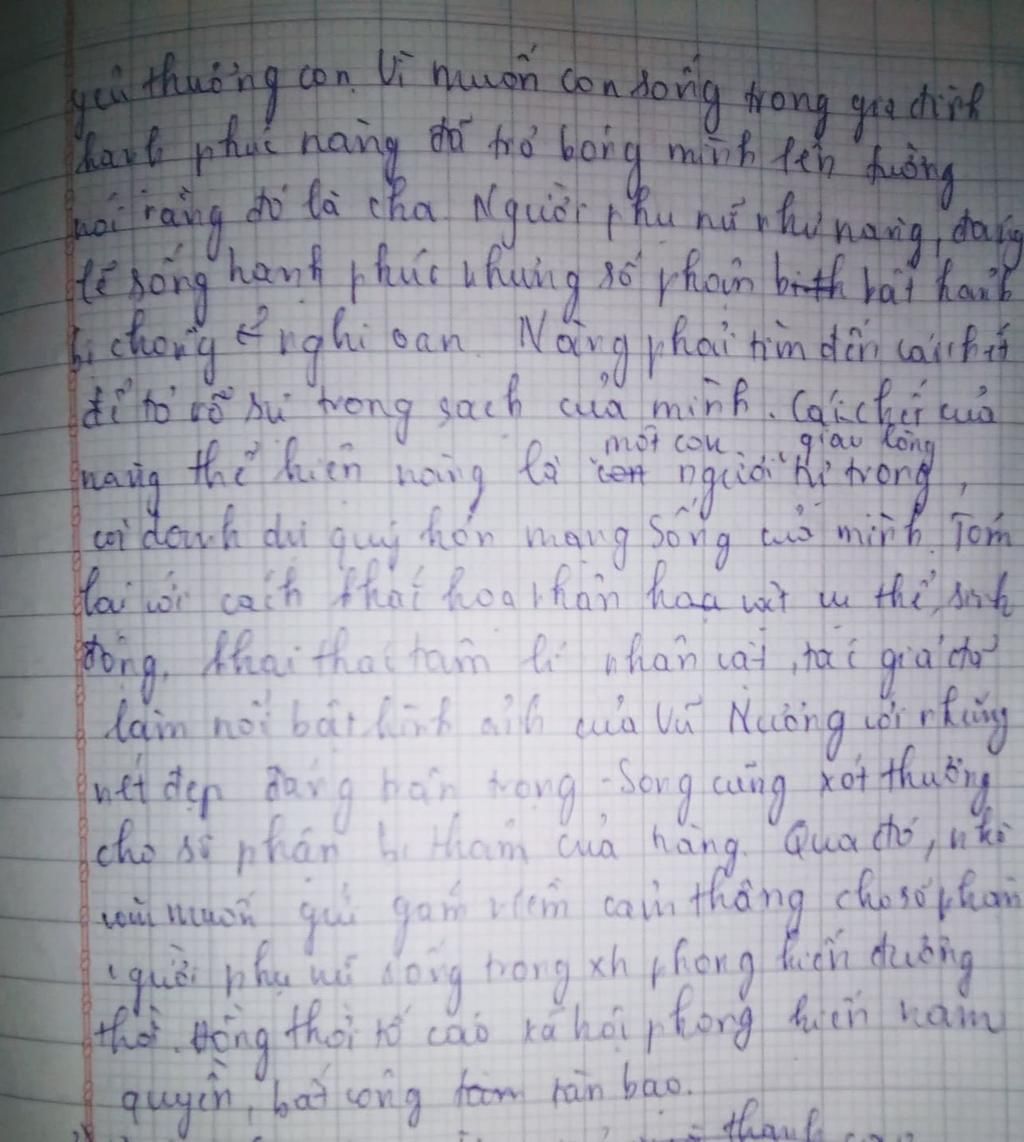 yêu thương con. Vì muốn con sống trong gia đình
hạnh phúc nàng đã trỏ bóng mình lên tường
nói rằng đó là cha Người phụ nữ như nàng, đáng
lẽ sống hạnh phúc nhưng số phận bất hạnh
bị chồng nghi oan. Nàng phải tìm đến cái chết
để tỏ rõ sự trong sạch của mình. Cái chết của
một con giàu lòng
nàng thể hiện nàng là người tự trọng,
coi danh dự quý hơn mạng sống của mình. Tóm
lại với cách khai hoa nhân hoa vật cụ thể, sinh
động. khai thác tâm lí nhân vật, tác giả đã
làm nổi bật hình ảnh của Vũ Nương với những
nét đẹp đáng trân trọng - Song cũng xót thương
cho số phận bi thảm của nàng. Qua đó, nhà
văn muốn gửi gắm niềm cảm thông cho số phận
người phụ nữ sống trong xh phong kiến đương
thời. Đồng thời tố cáo xã hội phong kiến nam
quyền, bất công tàn bạo.
thanh